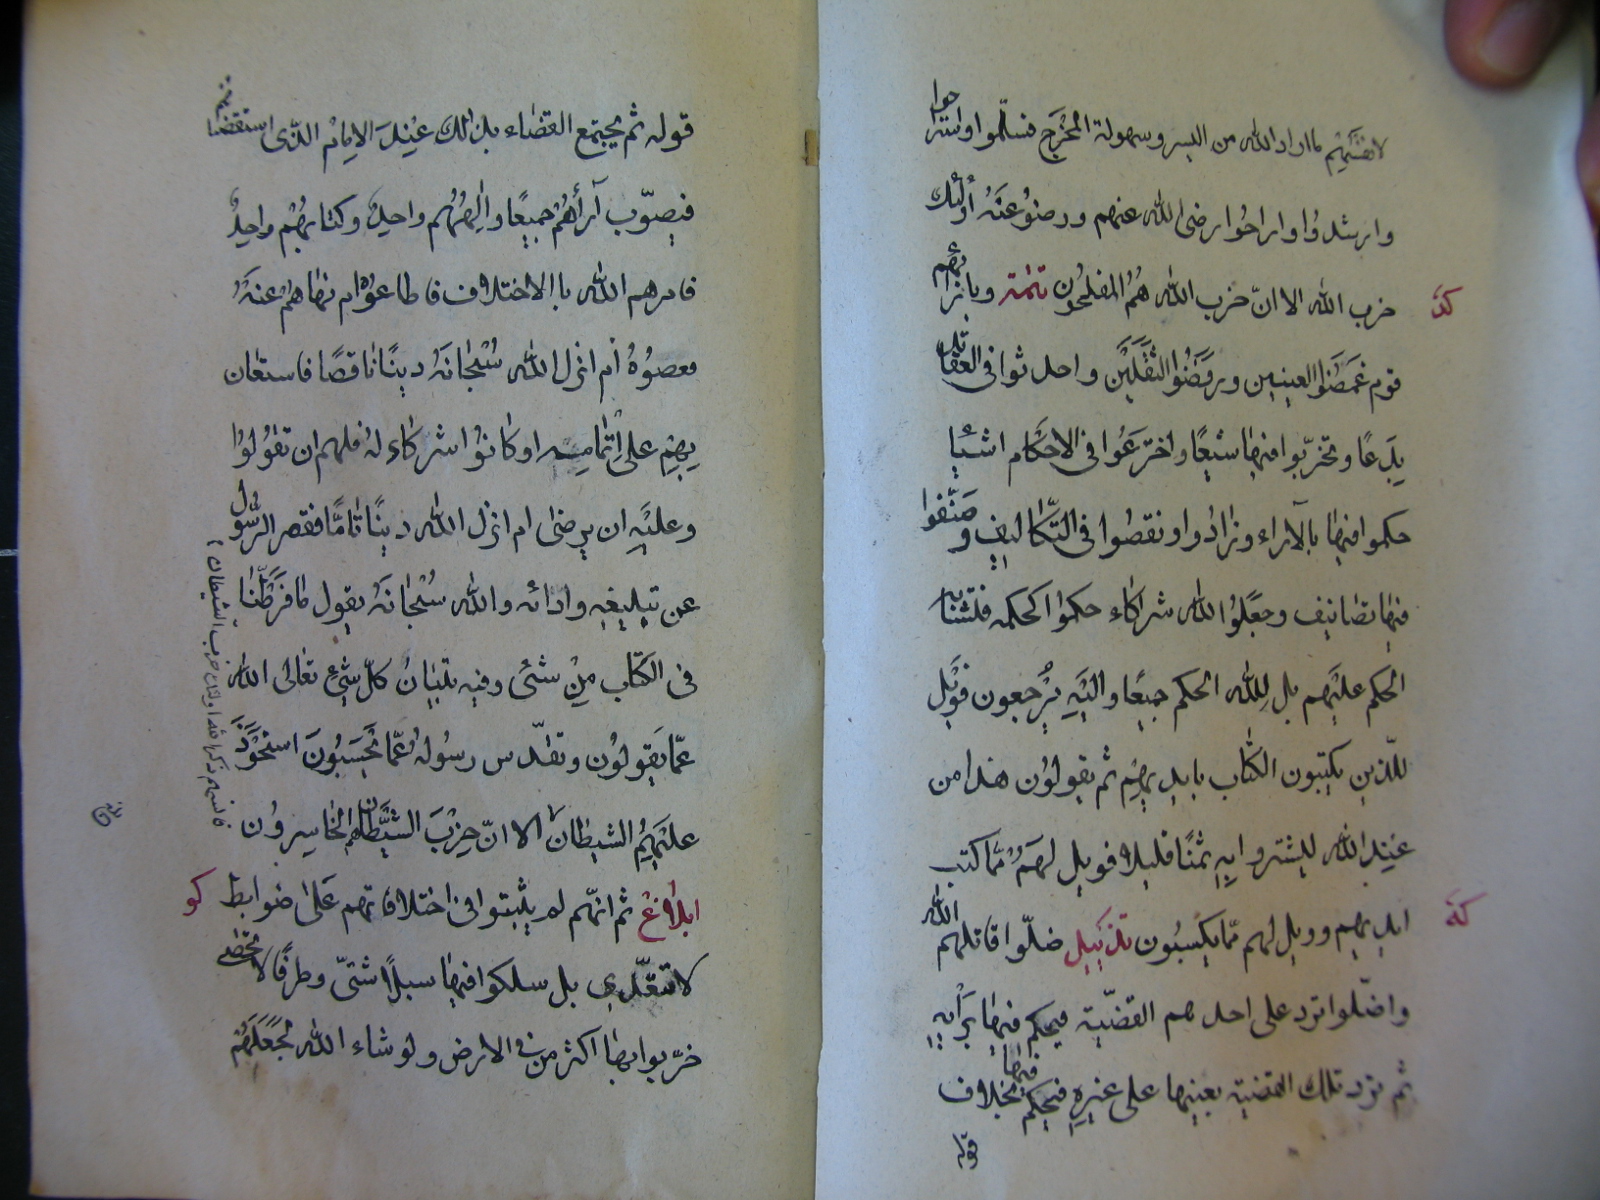 لانفسهم ما اراد الله من اليسر وسهولة المخرج فسلّموا واستراحوا
وارشدوا وراحوا رضى الله عنهم ورضوا عنه أولئك
حزب الله الا انّ حزب الله هم المفلحون تتمة وبازائهم
كد
قوم غمضوا العينين ورفضوا الثقلين واحدثوا فى العقائد
بدعًا وتحزّبوا فيها شيعًا واخترعوا فى الاحكام اشياء
حكموا فيها بالآراء وزادوا ونقصوا فى التكاليف وصنّفوا
فيها تصانيف وجعلوا لله شركاء حكموا كحكمه فتشابه
الحكم عليهم بل لله الحكم جميعًا واليه يرجعون فويل
للذين يكتبون الكتاب بايديهم ثم يقولون هذا من
عند الله ليشتروا به ثمنًا قليلا فويل لهم ممّا كتبت
ايديهم وويل لهم ممّا يكسبون تذييل ضلّوا قاتلهم الله
كه
واضلّوا ترد على احدهم القضيّة فيحكم فيها برأيه
ثم ترد تلك القضية بعينها على غيره فيحكم فيها بخلاف
قوله
قوله ثم يجتمع القضاء بذلك عند الامام الذى استقضاهم
فيصوّب آرائهم جميعًا والههم واحد وكتابهم واحد
فامرهم الله باالاختلاف فاطاعوه ام نهاهم عنه
فعصوه أم انزل الله سبحانه دينًا ناقصًا فاستعان
بهم على اتمامه او كانوا شركاء له فلهم ان تقولوا
وعليه ان يرضى ام انزل الله دينًا تامًّا فقصر الرسول
عن تبليغه وادائه والله سبحانه يقول ما فرّطنا
فى الكتاب من شئى وفيه تبيان كلّ شئ تعالى الله
عمّا يقولون وتقدّس رسوله عمّا يحسبون استحوذ
عليهم الشيطان الا انّ حزب الشيطان هم الخاسرون
فانسيهم ذكر الله اولئك حزب الشيطان
ابلاغ ثم انهم لم يثبتوا فى اختلافاتهم على ضوابط
كو
لا تتعدّى بل سلكوا فيها سبلًا شتّى وطرقًا لا تحصى
خرّبوا بها اكثر من فى الارض ولو شاء الله لجعلهم